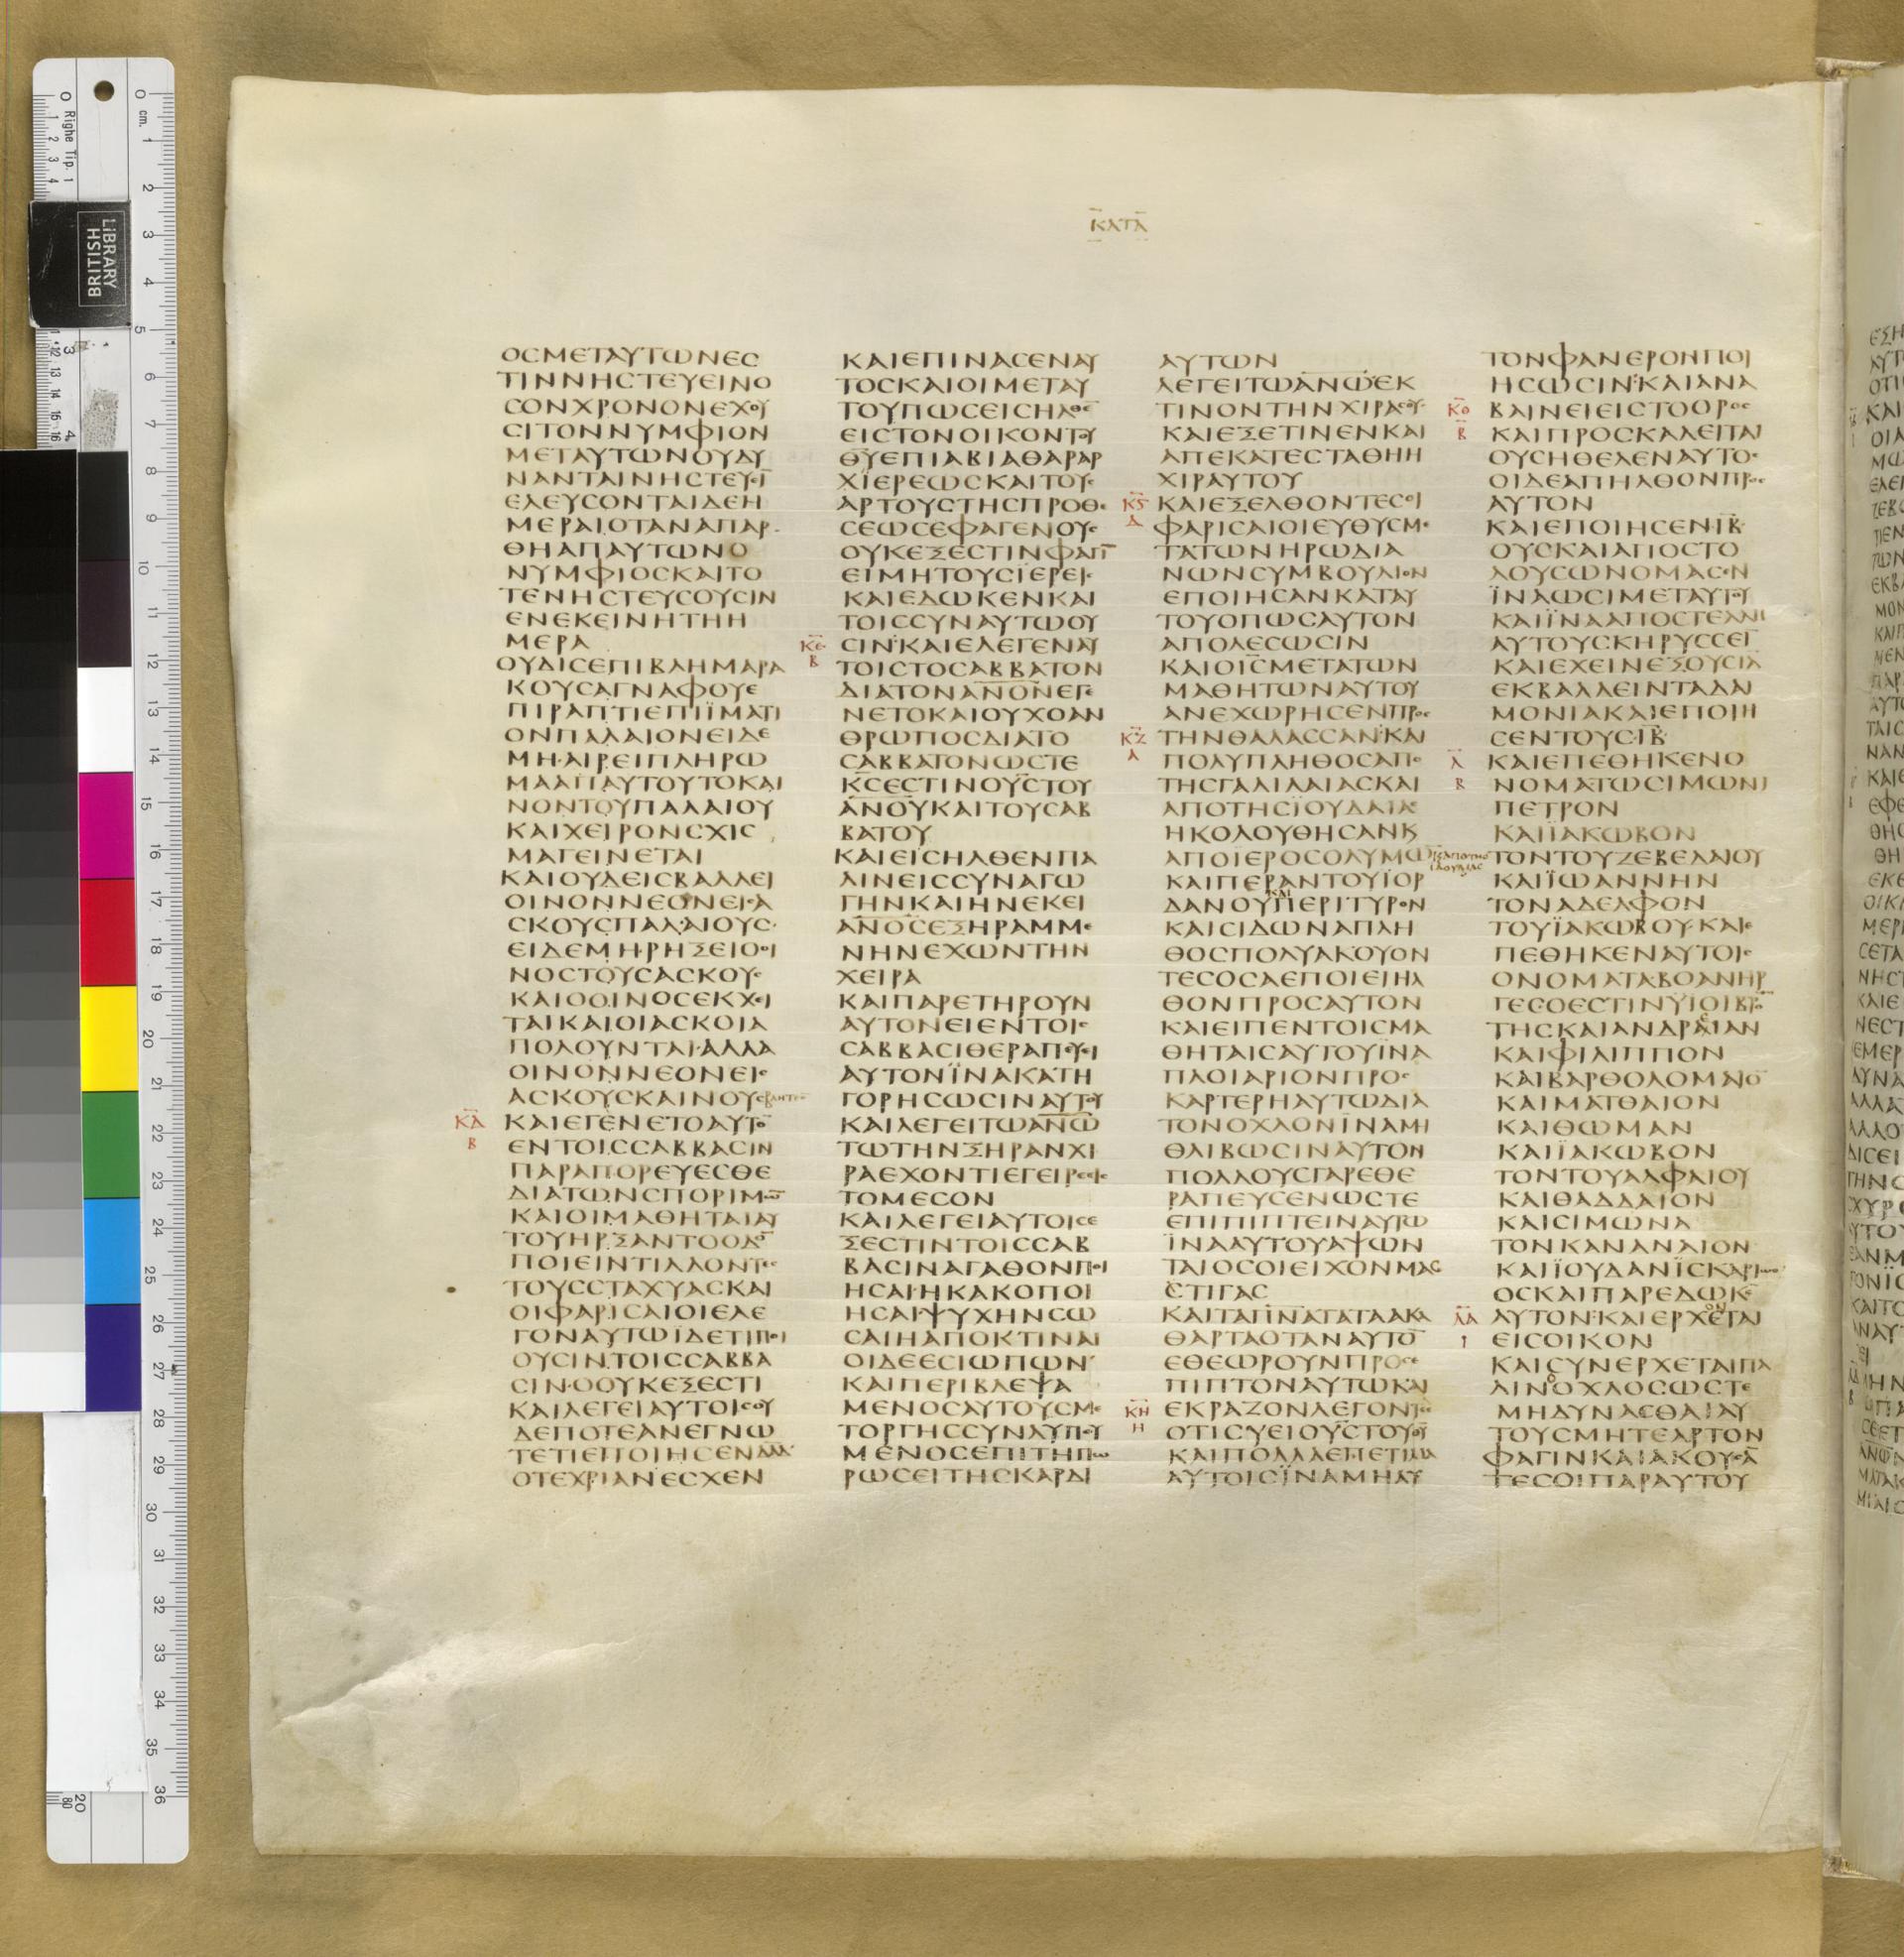 ΚΑΤΑ
ΟϹΜΕΤΑΥΤΩΝΕϹ
ΤΙΝΝΗϹΤΕΥΕΙΝΟ
ϹΟΝΧΡΟΝΟΝΕΧΟΥ
ϹΙΤΟΝΝΥΜΦΙΟΝ
ΜΕΤΑΥΤΩΝΟΥΔΥ
ΝΑΝΤΑΙΝΗϹΤΕΥΕΙ̅
ΕΛΕΥϹΟΝΤΑΙΔΕΗ
ΜΕΡΑΙΟΤΑΝΑΠΑΡ
ΘΗΑΠΑΥΤΩΝΟ
ΝΥΜΦΙΟϹΚΑΙΤΟ
ΤΕΝΗϹΤΕΥϹΟΥϹΙΝ
ΕΝΕΚΕΙΝΗΤΗΗ
ΜΕΡΑ
ΟΥΔΙϹΕΠΙΒΛΗΜΑΡΑ
ΚΟΥϹΑΓΝΑΦΟΥΕ
ΠΙΡΑΠΤΙΕΠΙΪΜΑΤΙ
ΟΝΠΑΛΑΙΟΝΕΙΔΕ
ΜΗΑΙΡΕΙΠΛΗΡΩ
ΜΑΑΠΑΥΤΟΥΤΟΚΑΙ
ΝΟΝΤΟΥΠΑΛΑΙΟΥ
ΚΑΙΧΕΙΡΟΝϹΧΙϹ
ΜΑΓΕΙΝΕΤΑΙ
ΚΑΙΟΥΔΕΙϹΒΑΛΛΕΙ
ΟΙΝΟΝΝΕΟΝΕΙϹΑ
ϹΚΟΥϹΠΑΛΑΙΟΥϹ
ΕΙΔΕΜΗΡΗΞΕΙΟΟΙ
ΝΟϹΤΟΥϹΑϹΚΟΥϹ
ΚΑΙΟΟΙΝΟϹΕΚΧΕΙ
ΤΑΙΚΑΙΟΙΑϹΚΟΙΑ
ΠΟΛΟΥΝΤΑΙ·ΑΛΛΑ
ΟΙΝΟΝΝΕΟΝΕΙϹ
ΑϹΚΟΥϹΚΑΙΝΟΥϹΒΛΗΤΕΟ̅
Κ̅Δ̅ ΚΑΙΕΓΕΝΕΤΟΑΥΤΟ̅
Β ΕΝΤΟΙϹϹΑΒΒΑϹΙΝ
ΠΑΡΑΠΟΡΕΥΕϹΘΕ
ΔΙΑΤΩΝϹΠΟΡΙΜΩ̅
ΚΑΙΟΙΜΑΘΗΤΑΙΑΥ
ΤΟΥΗΡΞΑΝΤΟΟΔΟ̅
ΠΟΙΕΙΝΤΙΛΛΟΝΤΕϹ
ΤΟΥϹϹΤΑΧΥΑϹΚΑΙ
ΟΙΦΑΡΙϹΑΙΟΙΕΛΕ
ΓΟΝΑΥΤΩΪΔΕΤΙΠΟΙ
ΟΥϹΙΝΤΟΙϹϹΑΒΒΑ
ϹΙΝ·ΟΟΥΚΕΞΕϹΤΙ
ΚΑΙΛΕΓΕΙΑΥΤΟΙϹΟΥ
ΔΕΠΟΤΕΑΝΕΓΝΩ
ΤΕΤΙΕΠΟΙΗϹΕΝΔΑΔ
ΟΤΕΧΡΙΑΝΕϹΧΕΝ
ΚΑΙΕΠΙΝΑϹΕΝΑΥ
ΤΟϹΚΑΙΟΙΜΕΤΑΥ
ΤΟΥΠΩϹΕΙϹΗΛΘΕ̅
ΕΙϹΤΟΝΟΙΚΟΝΤΟΥ
Θ̅Υ̅ΕΠΙΑΒΙΑΘΑΡΑΡ
ΧΪΕΡΕΩϹΚΑΙΤΟΥϹ
ΑΡΤΟΥϹΤΗϹΠΡΟΘΕ
ϹΕΩϹΕΦΑΓΕΝΟΥϹ
ΟΥΚΕΞΕϹΤΙΝΦΑΓΙ̅
ΕΙΜΗΤΟΥϹΪΕΡΕΙϹ
ΚΑΙΕΔΩΚΕΝΚΑΙ
ΤΟΙϹϹΥΝΑΥΤΩΟΥ
Κ̅Ε̅ ϹΙΝ·ΚΑΙΕΛΕΓΕΝΑΥ
Β ΤΟΙϹΤΟϹΑΒΒΑΤΟΝ
ΔΙΑΤΟΝΑ̅Ν̅Ο̅Ν̅ΕΓΕ
ΝΕΤΟΚΑΙΟΥΧΟΑΝ
ΘΡΩΠΟϹΔΙΑΤΟ
ϹΑΒΒΑΤΟΝΩϹΤΕ
Κ̅Ϲ̅ΕϹΤΙΝΟΥ̅Ϲ̅ΤΟΥ
Α̅Ν̅Ο̅Υ̅ΚΑΙΤΟΥϹΑΒ
ΒΑΤΟΥ
ΚΑΙΕΙϹΗΛΘΕΝΠΑ
ΛΙΝΕΙϹϹΥΝΑΓΩ
ΓΗΝΚΑΙΗΝΕΚΕΙ
Α̅Ν̅Ο̅Ϲ̅ΕΞΗΡΑΜΜΕ
ΝΗΝΕΧΩΝΤΗΝ
ΧΕΙΡΑ
ΚΑΙΠΑΡΕΤΗΡΟΥΝ
ΑΥΤΟΝΕΙΕΝΤΟΙϹ
ϹΑΒΒΑϹΙΘΕΡΑΠΕΥΕΙ
ΑΥΤΟΝΪΝΑΚΑΤΗ
ΓΟΡΗϹΩϹΙΝΑΥΤΟΥ
ΚΑΙΛΕΓΕΙΤΩΑ̅Ν̅Ω̅
ΤΩΤΗΝΞΗΡΑΝΧΙ
ΡΑΕΧΟΝΤΙΕΓΕΙΡΕΕΙϹ
ΤΟΜΕϹΟΝ
ΚΑΙΛΕΓΕΙΑΥΤΟΙϹΕ
ΞΕϹΤΙΝΤΟΙϹϹΑΒ
ΒΑϹΙΝΑΓΑΘΟΝΠΟΙ
ΗϹΑΙ·ΗΚΑΚΟΠΟΙ
ΗϹΑΙ·ΨΥΧΗΝϹΩ
ϹΑΙΗΑΠΟΚΤΙΝΑΙ
ΟΙΔΕΕϹΙΩΠΩΝ
ΚΑΙΠΕΡΙΒΛΕΨΑ
ΜΕΝΟϹΑΥΤΟΥϹΜΕ
ΤΟΡΓΗϹϹΥΝΛΥΠΟΥ
ΜΕΝΟϹΕΠΙΤΗΠΩ
ΡΩϹΕΙΤΗϹΚΑΡΔΙ
ΑΥΤΩΝ
ΛΕΓΕΙΤΩΑ̅Ν̅Ω̅ΕΚ
ΤΙΝΟΝΤΗΝΧΙΡΑϹΟΥ
ΚΑΙΕΞΕΤΙΝΕΝΚΑΙ
ΑΠΕΚΑΤΕϹΤΑΘΗΗ
ΧΙΡΑΥΤΟΥ
Κ̅Ϛ̅ ΚΑΙΕΞΕΛΘΟΝΤΕϹΟΙ
Δ ΦΑΡΙϹΑΙΟΙΕΥΘΥϹΜΕ
ΤΑΤΩΝΗΡΩΔΙΑ
ΝΩΝϹΥΜΒΟΥΛΙΟΝ
ΕΠΟΙΗϹΑΝΚΑΤΑΥ
ΤΟΥΟΠΩϹΑΥΤΟΝ
ΑΠΟΛΕϹΩϹΙΝ
ΚΑΙΟΙ̅Ϲ̅ΜΕΤΑΤΩΝ
ΜΑΘΗΤΩΝΑΥΤΟΥ
ΑΝΕΧΩΡΗϹΕΝΠΡΟϹ
Κ̅Ζ̅ ΤΗΝΘΑΛΑϹϹΑΝ·ΚΑΙ
Α ΠΟΛΥΠΛΗΘΟϹΑΠΟ
ΤΗϹΓΑΛΙΛΑΙΑϹΚΑΙ
ΑΠΟΤΗϹΪΟΥΔΑΙΑϹ
ΗΚΟΛΟΥΘΗϹΑΝΚ
ΑΠΟΪΕΡΟϹΟΛΥΜΩ̅ ΚΑΙΑΠΟΤΗϹ ΪΔΟΥΜΑΙΑϹ
ΚΑΙΠΕΡΑΝΤΟΥΪΟΡ
ΚΑΙ
ΔΑΝΟΥΠΕΡΙΤΥΡΟΝ
ΚΑΙϹΙΔΩΝΑΠΛΗ
ΘΟϹΠΟΛΥΑΚΟΥΟΝ
ΤΕϹΟϹΑΕΠΟΙΕΙΗΛ
ΘΟΝΠΡΟϹΑΥΤΟΝ
ΚΑΙΕΙΠΕΝΤΟΙϹΜΑ
ΘΗΤΑΙϹΑΥΤΟΥΪΝΑ
ΠΛΟΙΑΡΙΟΝΠΡΟϹ
ΚΑΡΤΕΡΗΑΥΤΩΔΙΑ
ΤΟΝΟΧΛΟΝΪΝΑΜΗ
ΘΛΙΒΩϹΙΝΑΥΤΟΝ
ΠΟΛΛΟΥϹΓΑΡΕΘΕ
ΡΑΠΕΥϹΕΝΩϹΤΕ
ΕΠΙΠΙΠΤΕΙΝΑΥΤΩ
ΪΝΑΑΥΤΟΥΑΨΩΝ
ΤΑΙΟϹΟΙΕΙΧΟΝΜΑϹ
ϹΤΙΓΑϹ
ΚΑΙΤΑΠ̅Ν̅Α̅ΤΑΤΑΑΚΑ
ΘΑΡΤΑΟΤΑΝΑΥΤΟ̅
ΕΘΕΩΡΟΥΝΠΡΟϹΕ
ΠΙΠΤΟΝΑΥΤΩΚΑΙ
Κ̅Η̅ ΕΚΡΑΖΟΝΛΕΓΟΝΤΕϹ
Η ΟΤΙϹΥΕΙΟΥ̅Ϲ̅ΤΟΥΘ̅Υ̅
ΚΑΙΠΟΛΛΑΕΠΕΤΙΜΑ
ΑΥΤΟΙϹΪΝΑΜΗΑΥ
ΤΟΝΦΑΝΕΡΟΝΠΟΙ
ΗϹΩϹΙΝ·ΚΑΙΑΝΑ
Κ̅Θ̅ ΒΑΙΝΕΙΕΙϹΤΟΟΡΟϹ
Β ΚΑΙΠΡΟϹΚΑΛΕΙΤΑΙ
ΟΥϹΗΘΕΛΕΝΑΥΤΟϹ
ΟΙΔΕΑΠΗΛΘΟΝΠΡΟϹ
ΑΥΤΟΝ
ΚΑΙΕΠΟΙΗϹΕΝΙ̅Β̅
ΟΥϹΚΑΙΑΠΟϹΤΟ
ΛΟΥϹΩΝΟΜΑϹΕΝ
ΪΝΑΩϹΙΜΕΤΑΥΤΟΥ
ΚΑΙΪΝΑΑΠΟϹΤΕΛΛΗ
ΑΥΤΟΥϹΚΗΡΥϹϹΕΙ̅
ΚΑΙΕΧΕΙΝΕΞΟΥϹΙΑ̅
ΕΚΒΑΛΛΕΙΝΤΑΔΑΙ
ΜΟΝΙΑΚΑΙΕΠΟΙΗ
ϹΕΝΤΟΥϹ·Ι̅Β̅
Λ̅ ΚΑΙΕΠΕΘΗΚΕΝΟ
Β ΝΟΜΑΤΩϹΙΜΩΝΙ
ΠΕΤΡΟΝ
ΚΑΙΪΑΚΩΒΟΝ
ΤΟΝΤΟΥΖΕΒΕΔΑΙΟΥ
ΚΑΙΪΩΑΝΝΗΝ
ΤΟΝΑΔΕΛΦΟΝ
ΤΟΥΪΑΚΩΒΟΥ·ΚΑΙΕ
ΠΕΘΗΚΕΝΑΥΤΟΙϹ
ΟΝΟΜΑΤΑΒΟΑΝΗΡ
ΓΕϹΟΕϹΤΙΝΫΙΟΙΒΡΟ̅
ΤΗϹΚΑΙΑΝΔΡΑΙΑΝ
ΚΑΙΦΙΛΙΠΠΟΝ
ΚΑΙΒΑΡΘΟΛΟΜΑΙΟ̅
ΚΑΙΜΑΤΘΑΙΟΝ
ΚΑΙΘΩΜΑΝ
ΚΑΙΪΑΚΩΒΟΝ
ΤΟΝΤΟΥΑΛΦΑΙΟΥ
ΚΑΙΘΑΔΔΑΙΟΝ
ΚΑΙϹΙΜΩΝΑ
ΤΟΝΚΑΝΑΝΑΙΟΝ
ΚΑΙΪΟΥΔΑΝΪϹΚΑΡΙΩΘ
ΟϹΚΑΙΠΑΡΕΔΩΚΕ
Λ̅Α̅ ΑΥΤΟΝ·ΚΑΙΕΡΧΕΤΑΙ
Ι ΕΙϹΟΙΚΟΝ
ΚΑΙϹΥΝΕΡΧΕΤΑΙΠΑ
ΛΙΝΟΧΛΟϹΩϹΤΕ
ΜΗΔΥΝΑϹΘΑΙΑΥ
ΤΟΥϹΜΗΤΕΑΡΤΟΝ
ΦΑΓΙΝΚΑΙΑΚΟΥϹΑ̅
ΤΕϹΟΙΠΑΡΑΥΤΟΥ
BRITISH
LIBRARY
Righe Tip. 1
cm.